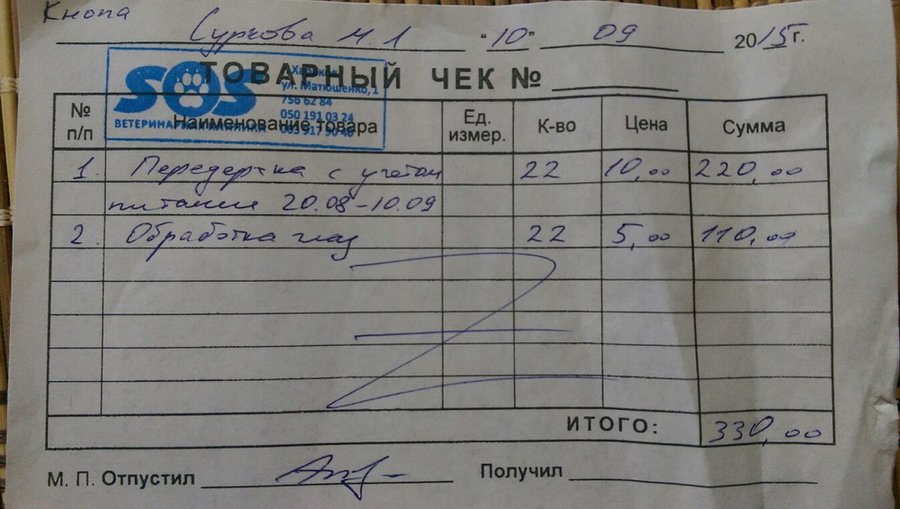 Кнопа
Суркова "10" 09 2015г.
ТОВАРНЫЙ ЧЕК №
SOS
ВЕТЕРИНАРНАЯ КЛИНИКА
ул. Матюшенко,1
756 62 84
050 191 03 24
№ п/п Наименование товара Ед. измер. К-во Цена Сумма
1. Передержка с учетом 22 10,00 220,00
питания 20.08-10.09
2. Обработка глаз 22 5,00 110,00
ИТОГО: 330,00
М. П. Отпустил Получил